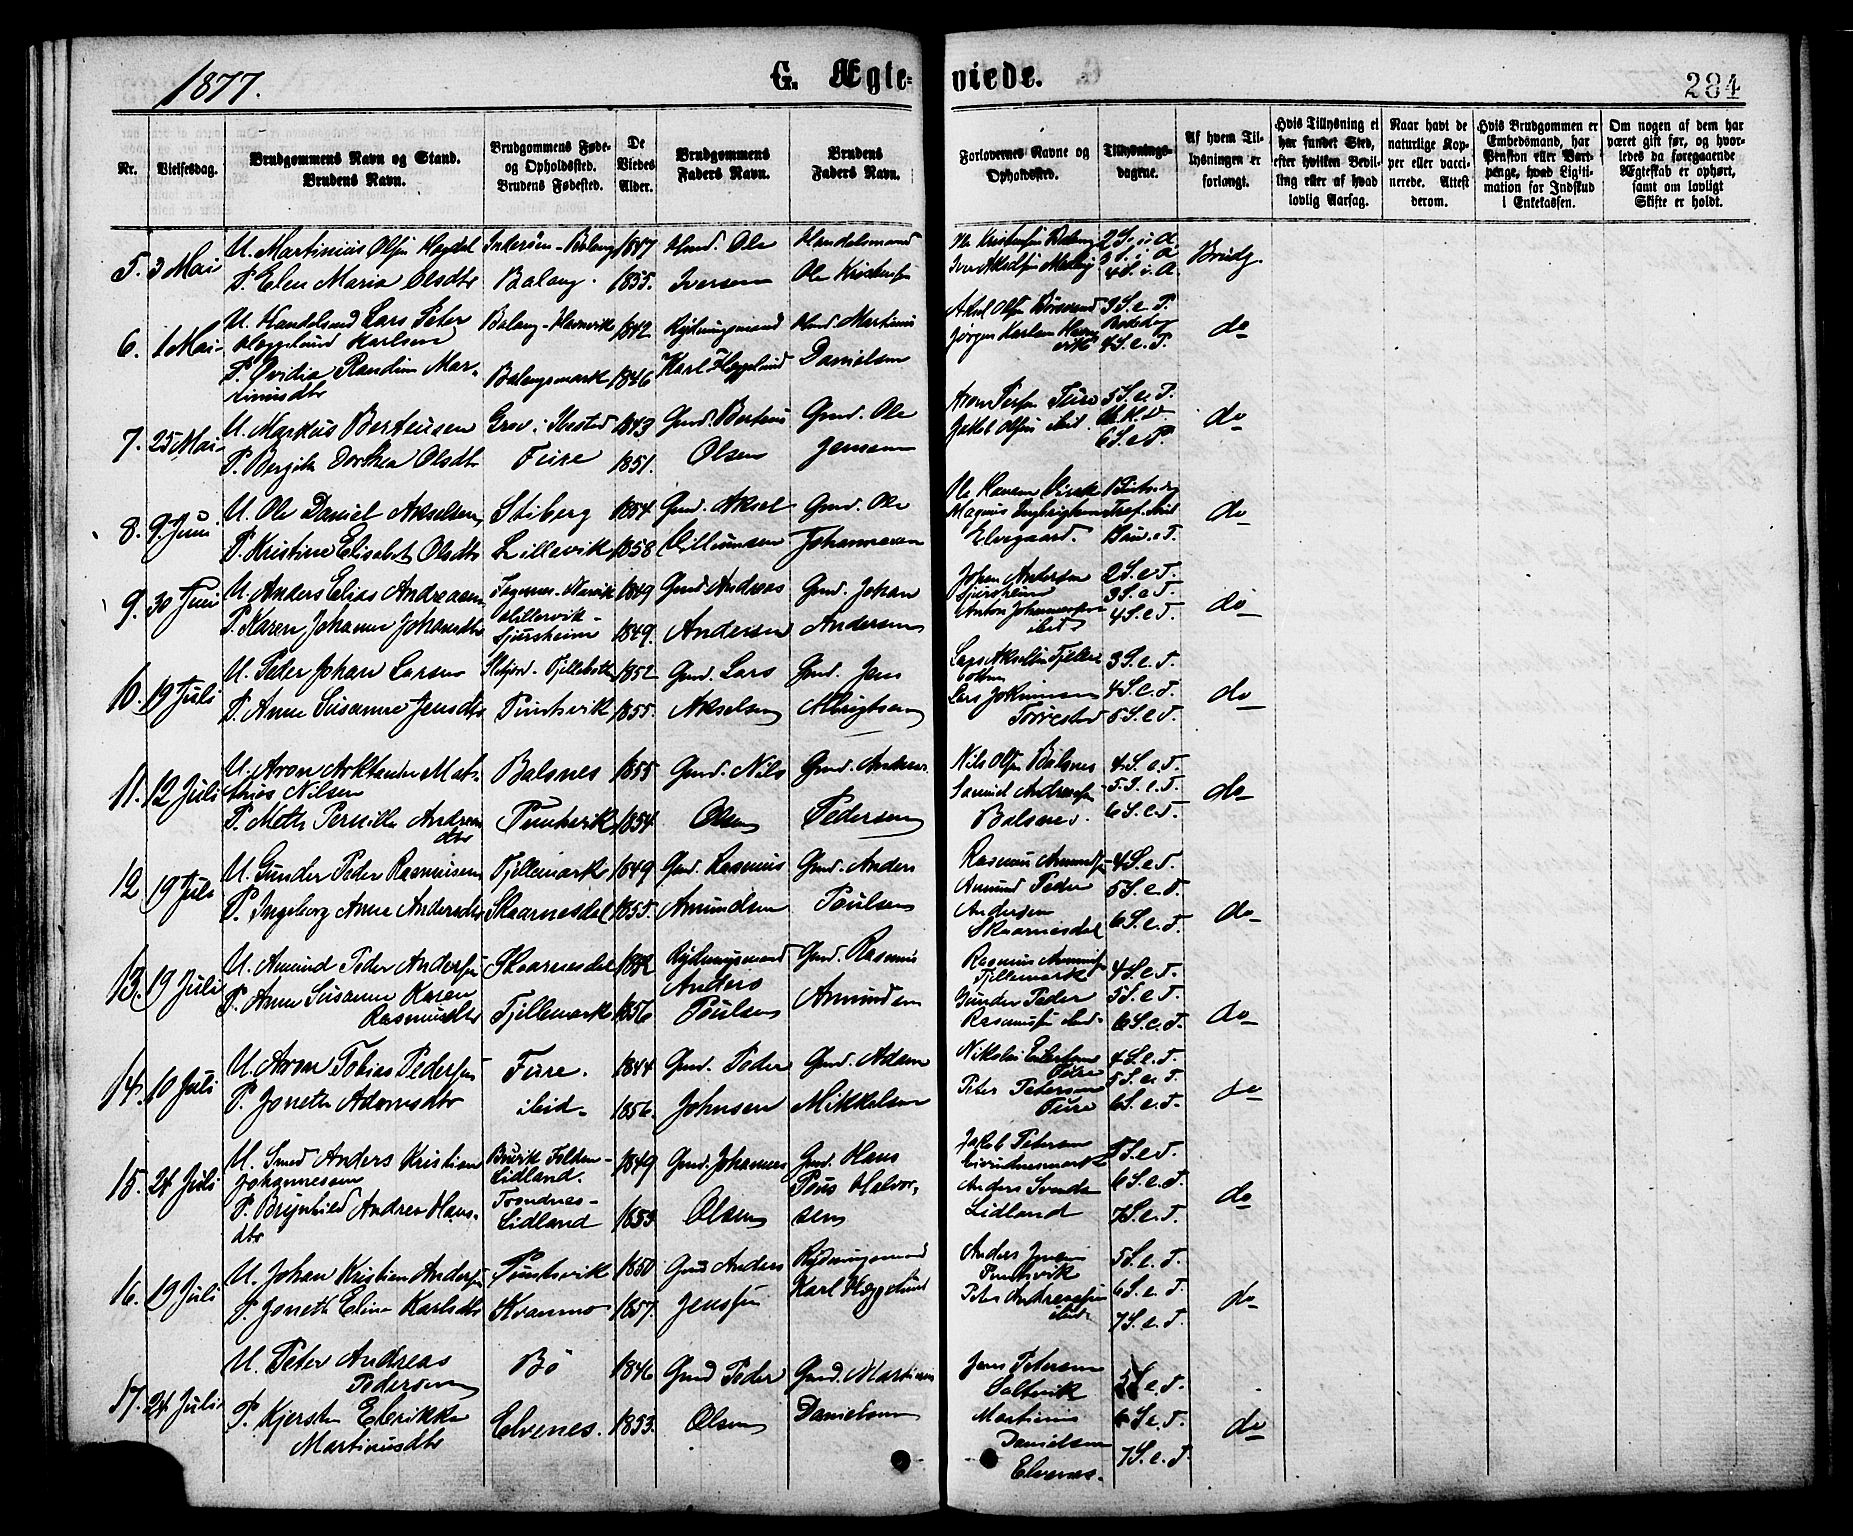 1877.
G. Ægte-
viede.
284
Nr.
Vielsesdag.
Brudgommens Navn og Stand.
Brudens Navn.
Brudgommens Føde-
og Opholdssted.
Brudens Fødested.
De
Viedes
Alder.
Brudgommens
Faders Navn.
Brudens
Faders Navn.
Forlovernes Navne og
Opholdssted.
Tillysnings-
dagene.
Af hvem Til-
lysningen er
forlangt.
Hvis Tillysning ei
har fundet Sted,
efter hvilken Bevil-
ling eller af hvad
lovlig Aarsag.
Naar havt de
naturlige Kop-
per eller vacci-
nerede. Attest
derom.
Hvis Brudgommen er
Embedsmand, har
Pension eller Vart-
penge, hvad Ligiti-
mation for Indskud
i Enkekassen.
Om nogen af dem har
været gift før, og hvor-
ledes da foregaaende
Ægteskab er ophørt,
samt om lovligt
Skifte er holdt.
5. 3 Mai
U. Martinius Olsen
P. Elen Maria Olsdtr
Balang.
1847
1855.
Ole
Iversen
Handelsmand
Ole Kristensen
2 S. i A.
3 S. i A.
4 S. i A.
Brudg.
6. 1 Mai
U. Handelsmd Lars Peter
Heggelund Karlsen
P. Ovidia Randine Mar-
tinusdtr
Balang - Havnvik
Balangsmark
1842
1846
Rydningsmand
Karl Heggelund
Martinus
Danielsen
Aksel Olsen
Jørgen Karlsen Havn
vik
3 S. e. P.
Bededag
4 S. e. P.
do
7. 25 Mai
U. Markus Berteusen
P. Bergitte Dorthea Olsdtr
Grov i Ibestad
Fure
1843
1851.
Gmd. Berteus
Olsen
Gmd. Ole
Jensen
Aron Peders. Fure
Jakob Olsen ibid.
5 S. e. P.
6 S. e. P.
do
8. 9. Juni
U. Ole Daniel Akselsen
P. Kristine Elisabet Olsdtr
Stiberg
Lillevik
1854.
1858
Gmd. Aksel
Gmd. Ole
Johannesen
Magnus
Elvegaard.
do
9. 30 Juni
U. Anders Elias Andreasen
P. Karen Johanna Johansdtr
Lillevik -
Sjursheim
1849
1849.
Gmd. Andreas
Andersen
Gmd. Johan
Andersen
Johan Andersen
Sjursheim
Anton Johannesen
ibid
2 S. e. T.
3 S. e. T.
4 S. e. T.
do
10. 19 Juli
U. Peder Johan Larsen
P. Anne Susanne Jensdtr
Puntsvik
1852
1855.
Gmd. Lars
Akselsen
Gmd. Jens
Albrigtsen
Lars Akselsen
Lars Jokumsen
Torrestad
3 S. e. T.
4 S. e. T.
5 S. e. T.
do
11. 12 Juli
U. Aron Arktander Mat-
thias Nilsen
P. Mette Pernille Andreas
dtr
Balsnes
Puntsvik
1855
1854.
Gmd. Nils
Olsen
Gmd. Andreas
Pedersen
Nils Olsen Balsnes
Samuel Andreasen
Balsnes.
4. S. e. T.
5. S. e. T.
6 S. e. T.
do
12 19 Juli
U. Gunder Peder Rasmussen
P. Ingeborg Anna Andersdtr
Tjellemark
Skaarnesdal
1849
1855.
Gmd. Rasmus
Amundsen
Gmd. Anders
Poulsen
Rasmus Amundsen
Amund Peder
Andersen
Skaarnesdal
4 S. e. T.
5 S. e. T.
6 S. e. T.
do
13. 19 Juli
U. Amund Peder Andersen
P. Anne Susanne Karen
Rasmusdtr
Skaarnesdal
Tjellemark
1852
1856
Rydningsmand
Anders
Poulsen
Gmd. Rasmus
Amundsen
Rasmus Amundsen
Tjellemark
Gunder Peder
Rasmussen ibid.
4 S. e. T.
5 S. e T.
6 S. e. T.
do
14. 10 Juli
U. Aron Tobias Pedersen
P. Jonetta Adamsdtr
Fure.
ibid.
1844
1856.
Gmd. Peder
Johnsen
Gmd. Adam
Mikkelsen
Nikolai
Fure
Peter Pedersen
Fure
4 S. e. T.
5 S. e. T.
6 S. e. T.
do
15. 24 Juli
U. Smed Anders Kristian
Johannessen
P. Brynhild Andrea Hans-
dtr
Lidland.
Lidland
1849
1855
Gmd. Johannes
Olsen
Gmd. Hans
Peus Halvor-
sen
Jakob Petersen
Anders
Lidland
5 S. e. T.
6 S. e. T.
7 S. e. T.
do
16. 19 Juli
U. Johan Kristian Andersen
P. Jonetta Elina Karlsdtr
Puntsvik
Kvanmo
1850
1857.
Gmd Anders
Jensen
Rydningsmand
Karl Heggelund
Anders Jensen
Puntsvik
Peter Andreasen
ibid.
5 S. e. T.
6 S. e. T.
7 S. e. T.
do
17. 24 Juli
U. Peter Andreas
Pedersen
P. Kjersten Elerikka
Martinusdtr
Bö
Elvenes.
1846
1853.
Gmd Peder
Olsen
Gmd. Martinus
Danielsen
Jens Petersen
Saltvik
Martinus
Danielsen
Elvenes.
5 S. e. T.
6 S. e. T.
7 S. e. T.
do